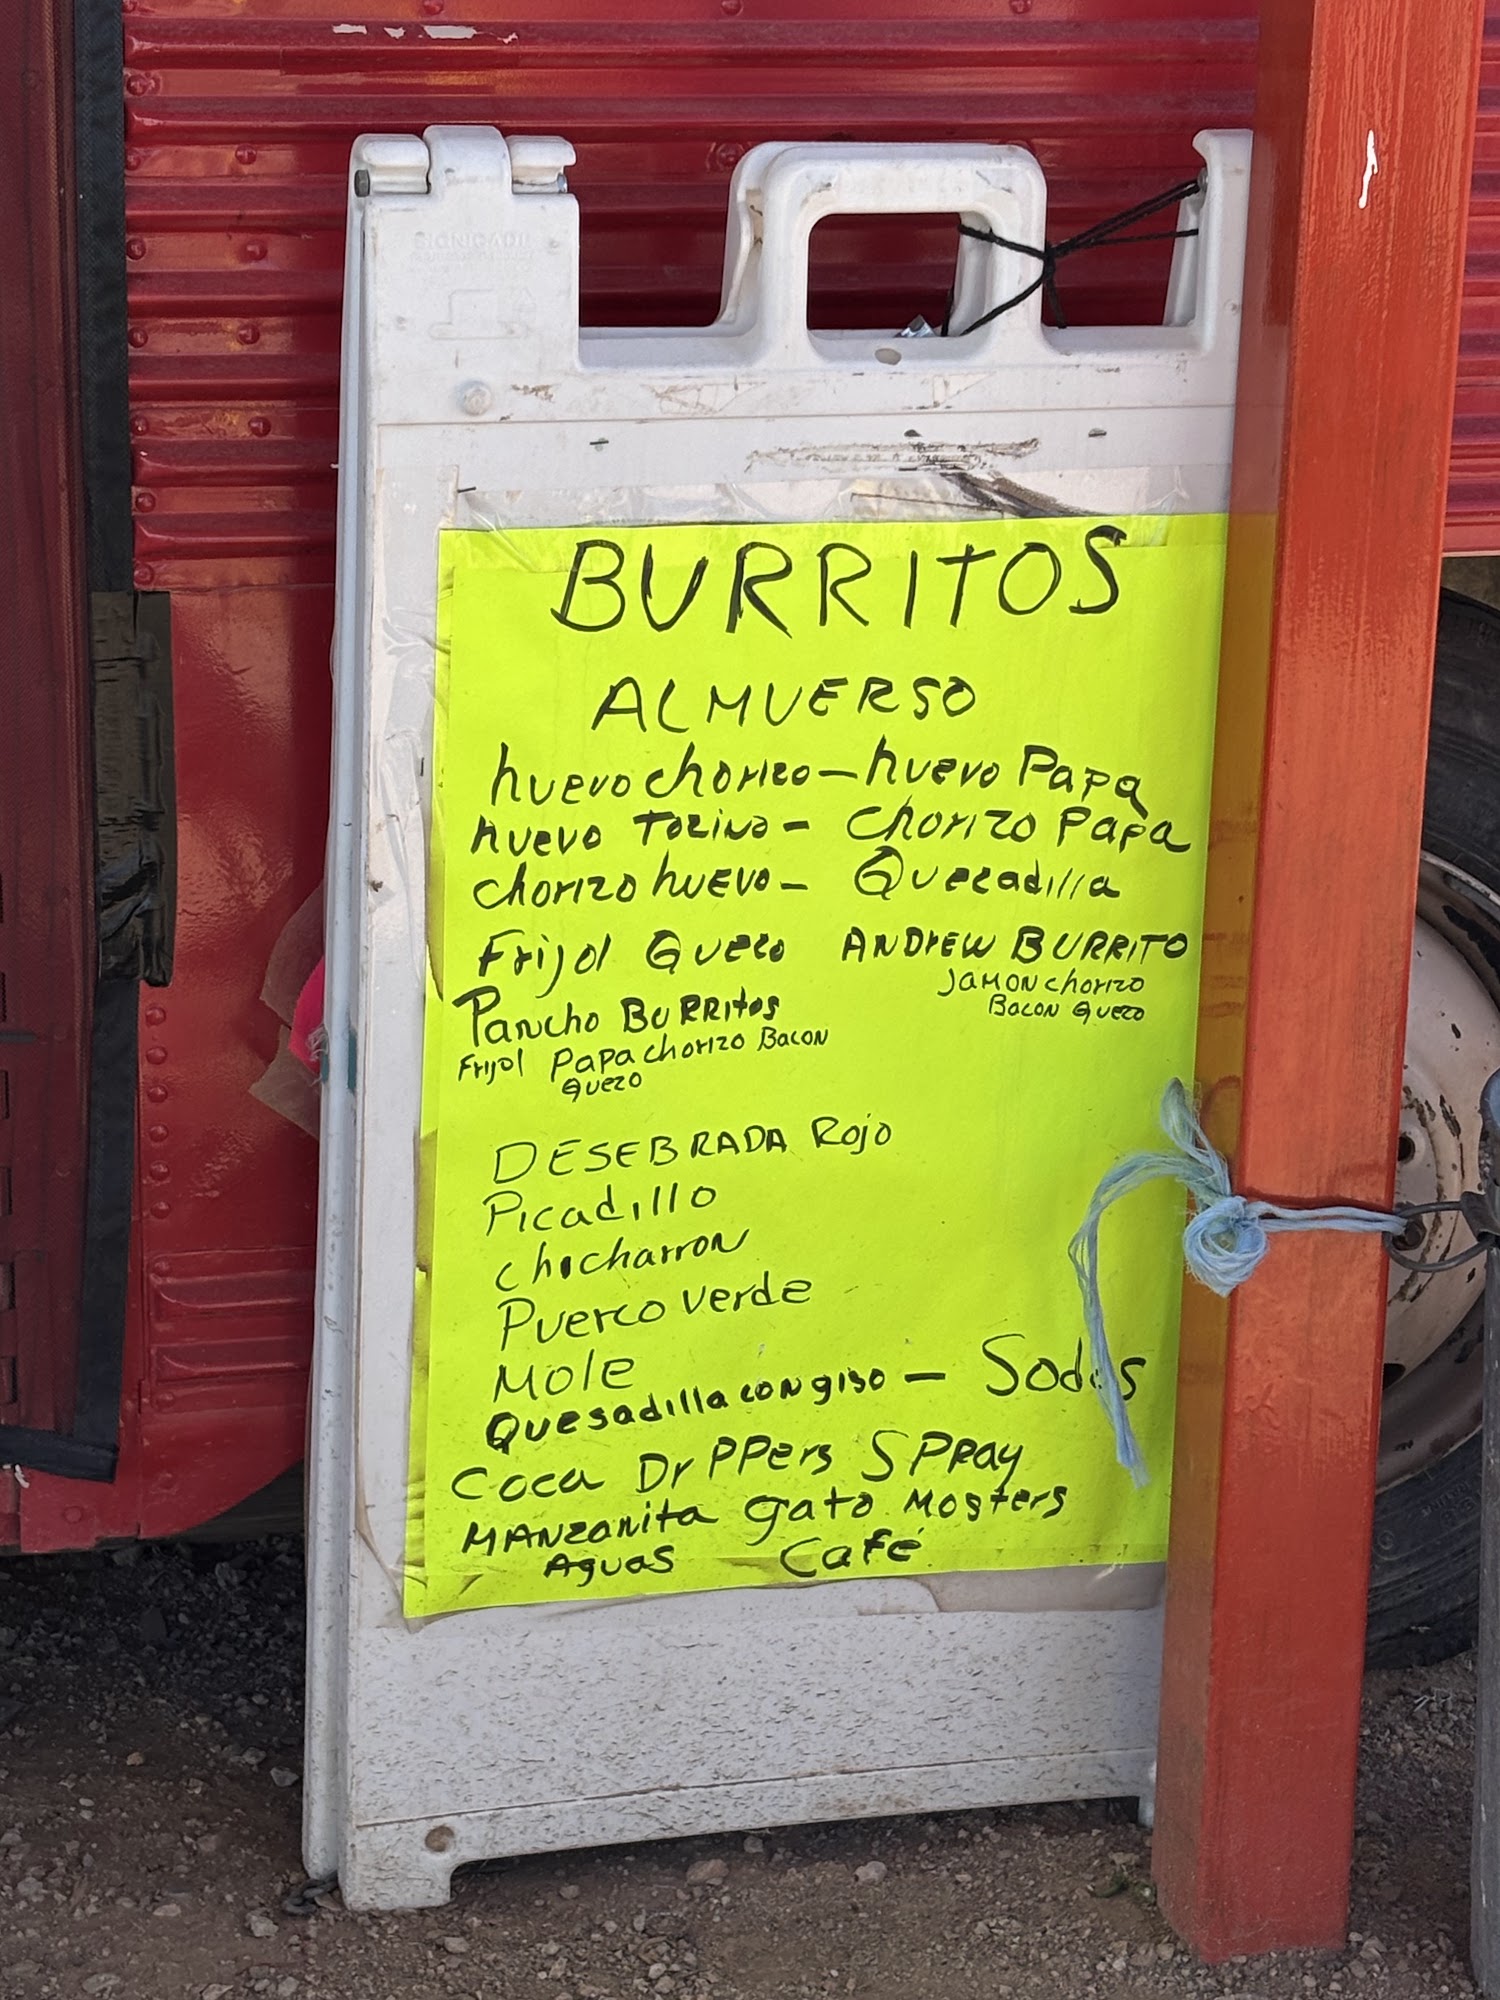 SIGNICADE
BURRITOS
ALMUERSO
huevo chorizo - huevo Papa
huevo Tozino - Chorizo Papa
chorizo huevo - Quezadilla
Frijol Quezo ANDREW BURRITO
Jamon chorizo
Bacon Quezo
Pancho BURRitos
Frijol Papa chorizo Bacon
Quezo
DESEBRADA Rojo
Picadillo
chicharron
Puerco verde
Mole
Quesadilla con giso - Sodas
Coca Dr PPers SPRay
MANzanita gato Mosters
Aguas Café